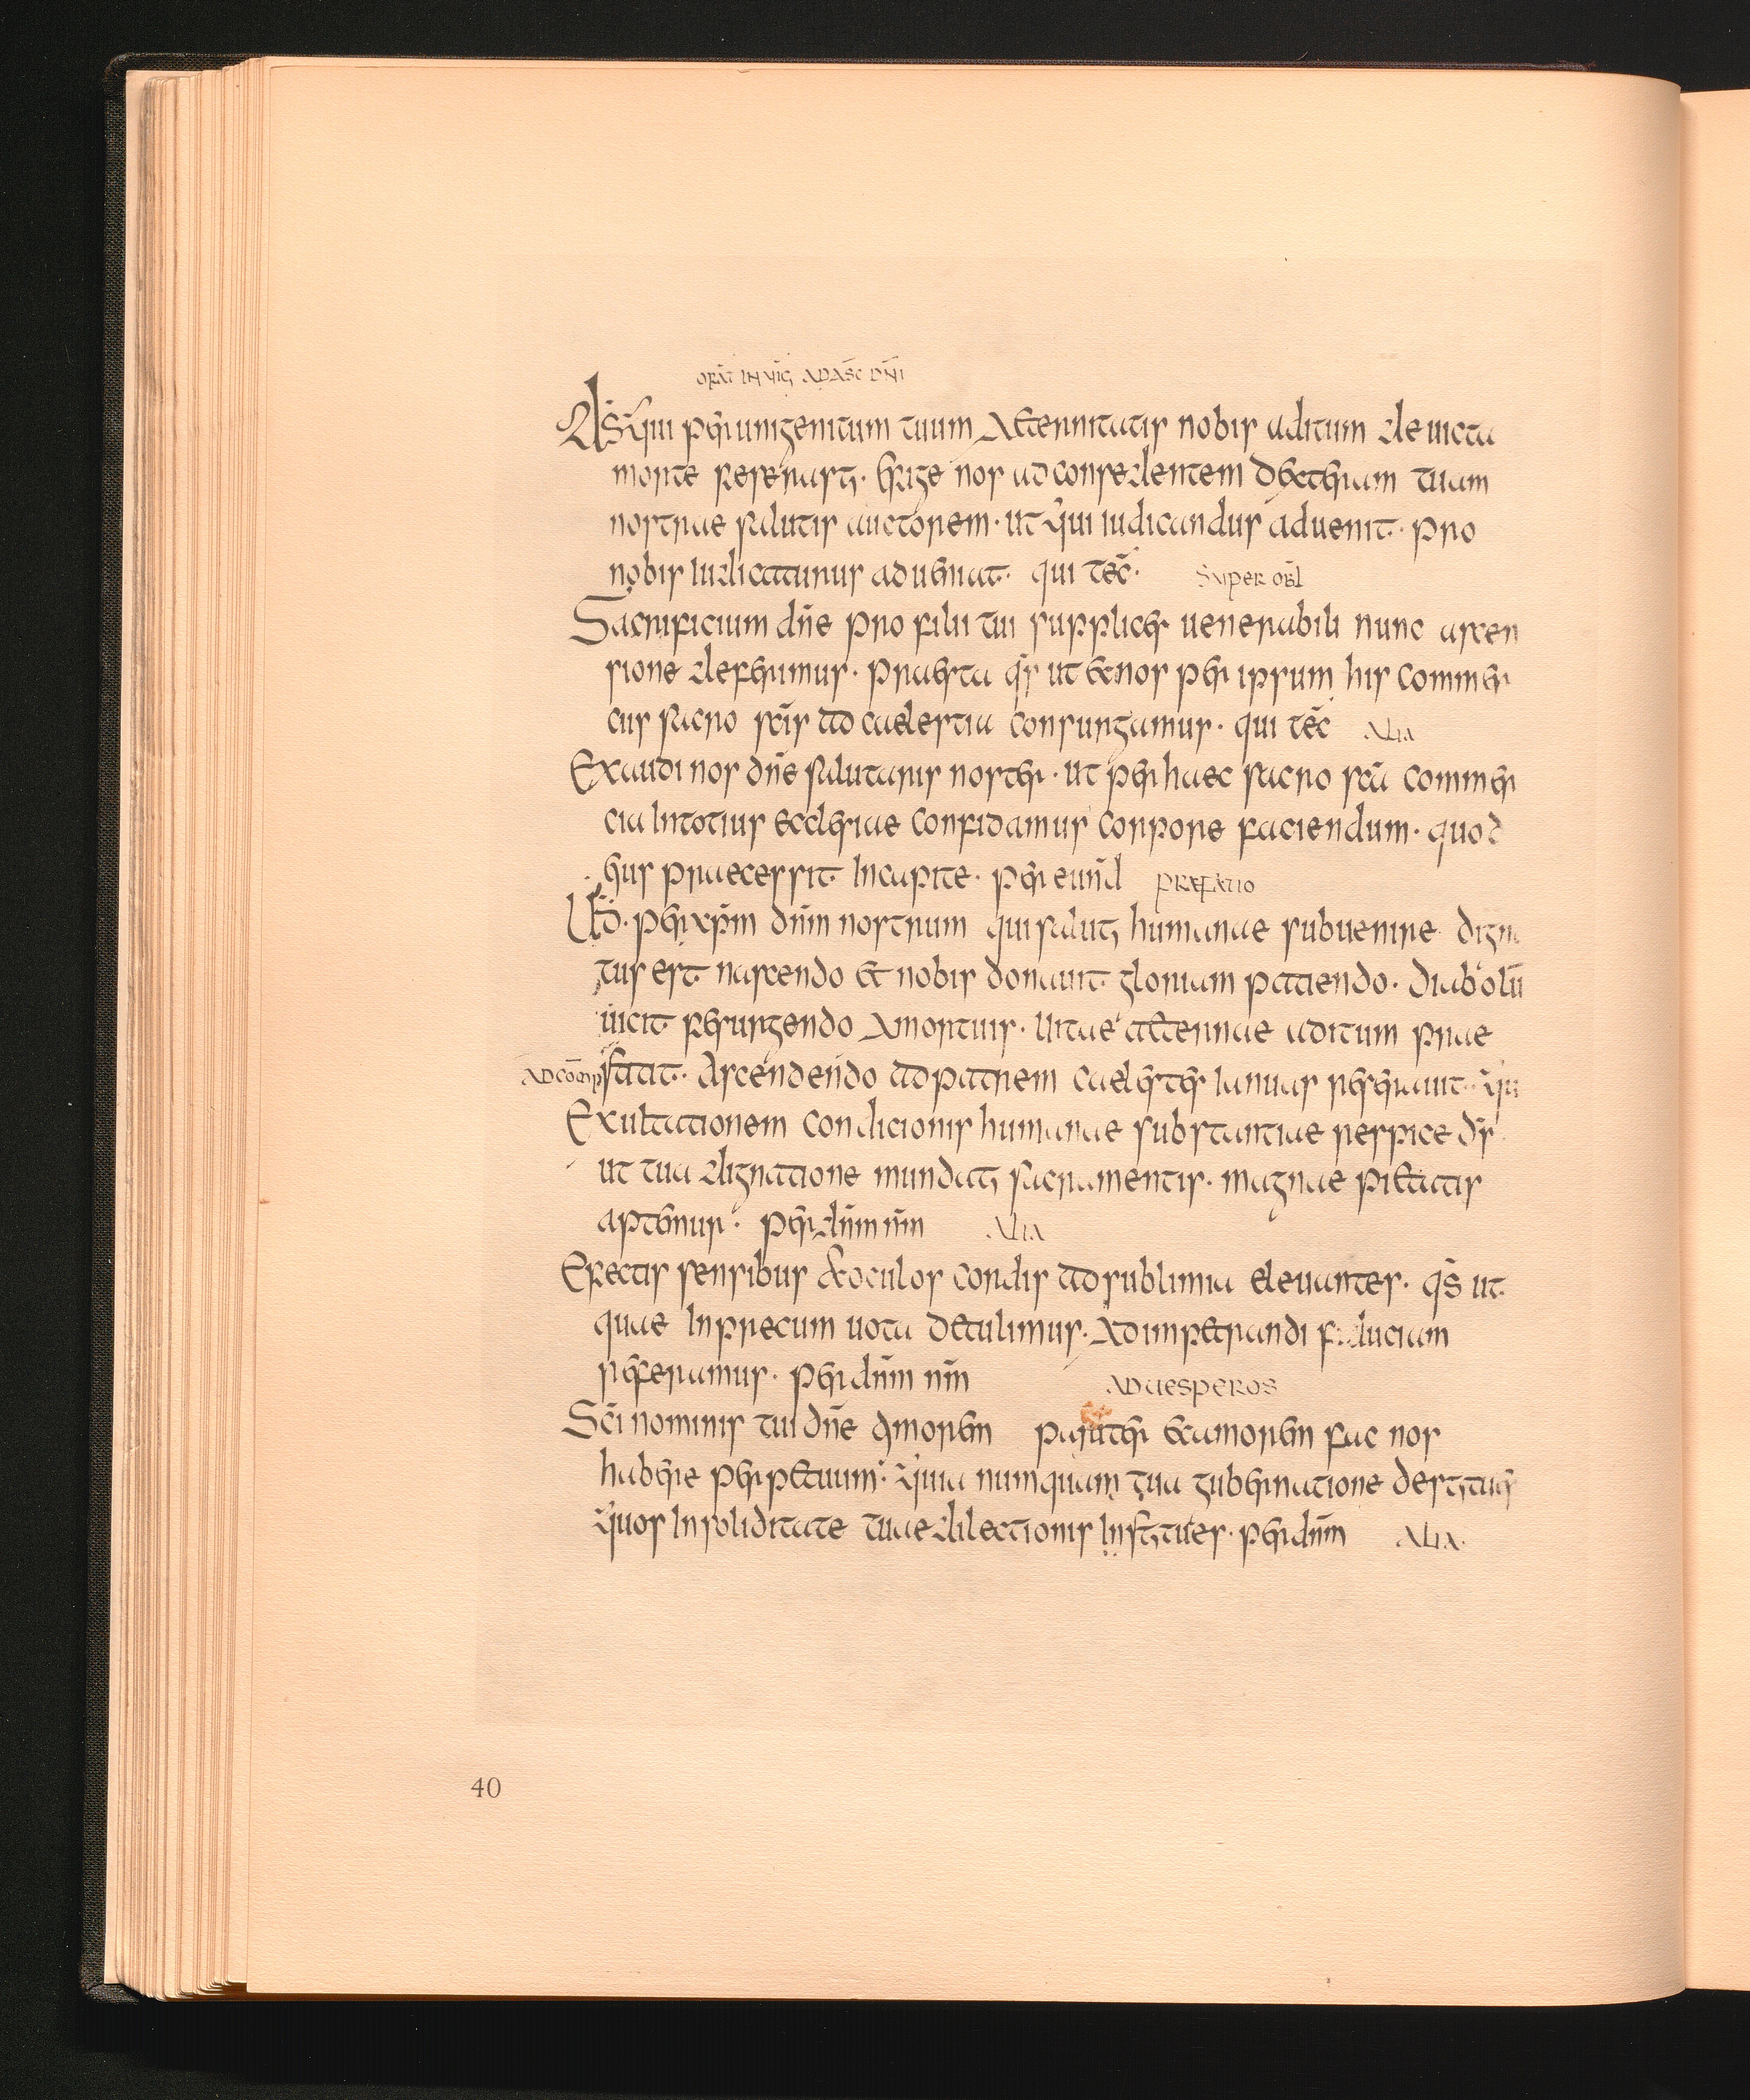 ORAT IN VIG ADASC DNI
Ds qui per unigenitum tuum aeternitatis nobis aditum devicta
morte reserasti. erige nos ad consedentem dexteram tuam
nostrae salutis auctorem. ut qui iudicandus advenit. pro
nobis iudicaturus adveniat. qui tec. SUPER OBL
Sacrificium dne pro filii tui supplices venerabili nunc ascen
sione deferimus. praesta qs ut et nos per ipsum his commer
ciis sacro scis ad caelestia consurgamus. qui tec ALIA
Exaudi nos dne salutaris noster. ut per haec sacro sca commer
cia in totius ecclesiae confidamus corpore faciendum. quod
eius praecessit in capite. per eund PRAEFATIO
UD. per xpm dnm nostrum qui saluti humanae subvenire digna
tus est. nascendo et nobis donavit gloriam patiendo. diabolū
vicit resurgendo a mortuis. vitae aeternae aditum prae
ADCOMP stitit. Ascendendo ad patrem caelestes ianuas reseravit. qui
Exultationem condicionis humanae substantiae respice ds
ut tua dignatione mundati sacramentis. magnae pietatis
aptemur. per dnm nm ALIA
Erectis sensibus et oculos cordis ad sublimia elevantes. qs ut
quae in precum vota detulimus. ad impetrandi fiduciam
referamus. per dnm nm ADUESPEROS
Sci nominis tui dne timorem pariter et amorem fac nos
habere perpetuum. quia numquam tua gubernatione destituis
quos in soliditate tuae dilectionis institues. per dnm ALIA.
40